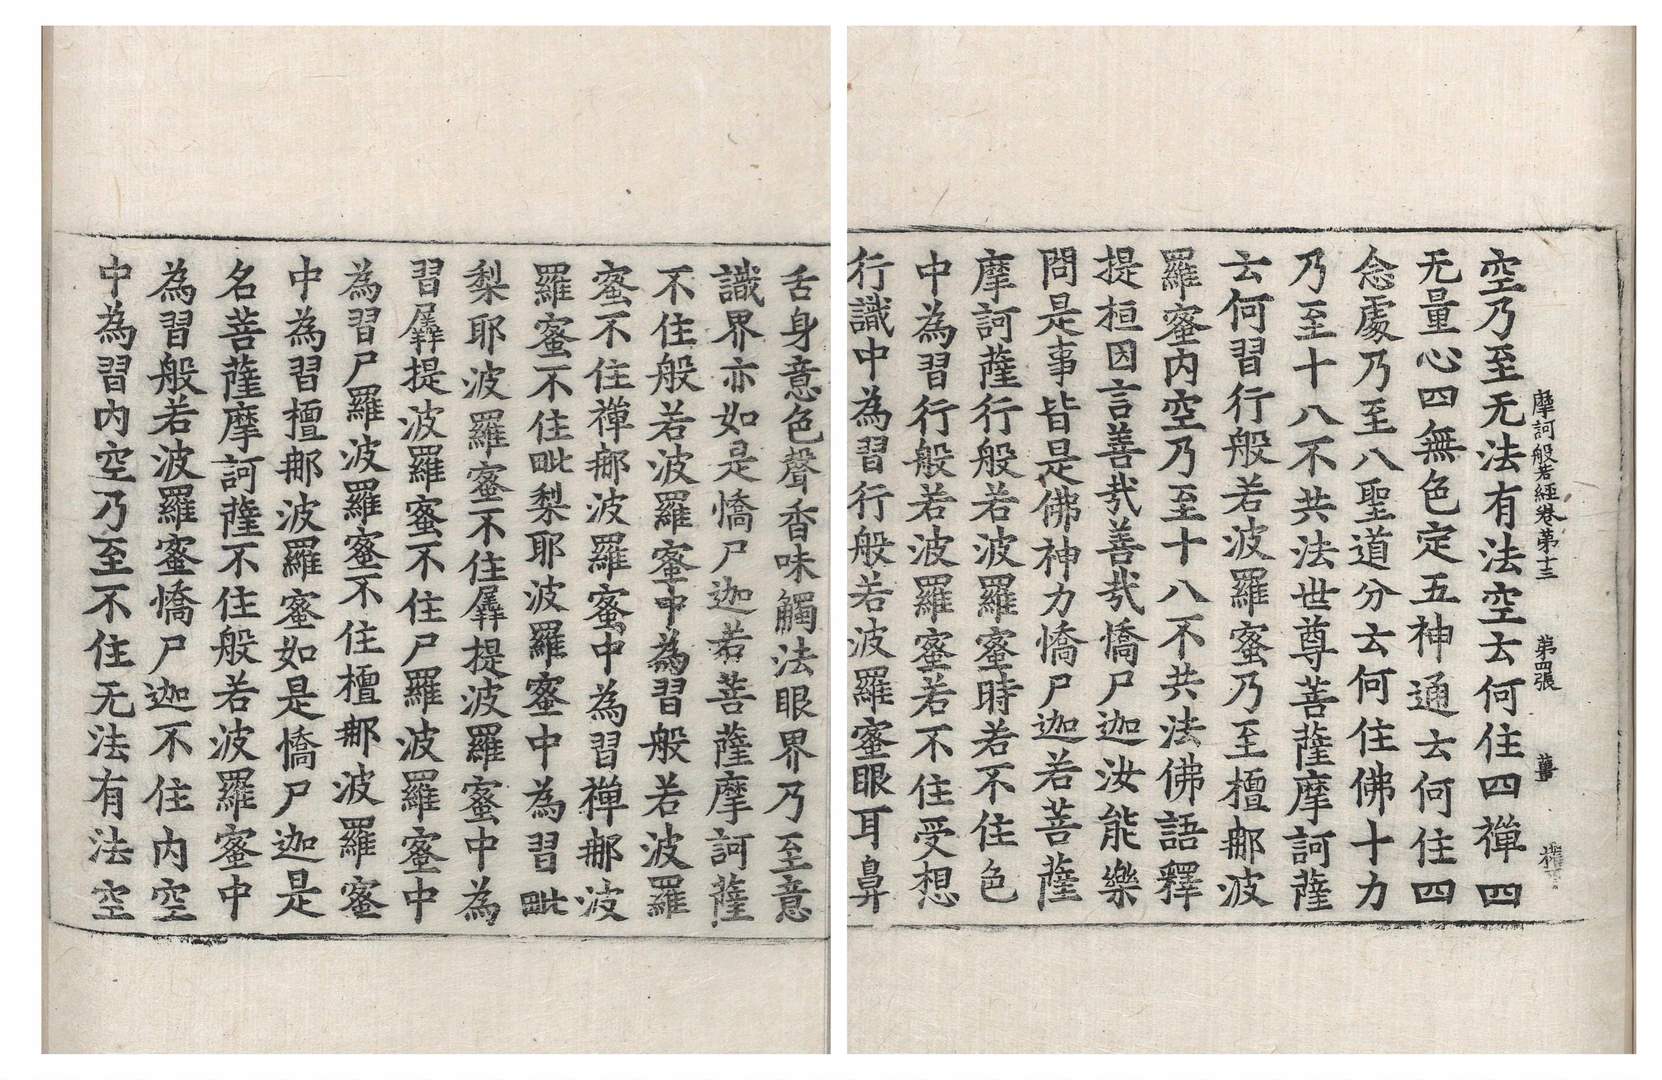 摩訶般若經卷第十三　第四張　薑
空乃至无法有法空云何住四禪四
无量心四無色定五神通云何住四
念處乃至八聖道分云何住佛十力
乃至十八不共法世尊菩薩摩訶薩
云何習行般若波羅蜜乃至檀𨚗波
羅蜜内空乃至十八不共法佛語釋
提桓因言善㢤善㢤憍尸迦汝能樂
問是事皆是佛神力憍尸迦若菩薩
摩訶薩行般若波羅蜜時若不住色
中為習行般若波羅蜜若不住受想
行識中為習行般若波羅蜜眼耳鼻
舌身意色聲香味觸法眼界乃至意
識界亦如是憍尸迦若菩薩摩訶薩
不住般若波羅蜜中為習般若波羅
蜜不住禪𨚗波羅蜜中為習禪𨚗波
羅蜜不住毗梨耶波羅蜜中為習毗
梨耶波羅蜜不住羼提波羅蜜中為
習羼提波羅蜜不住尸羅波羅蜜中
為習尸羅波羅蜜不住檀𨚗波羅蜜
中為習檀𨚗波羅蜜如是憍尸迦是
名菩薩摩訶薩不住般若波羅蜜中
為習般若波羅蜜憍尸迦不住内空
中為習内空乃至不住无法有法空